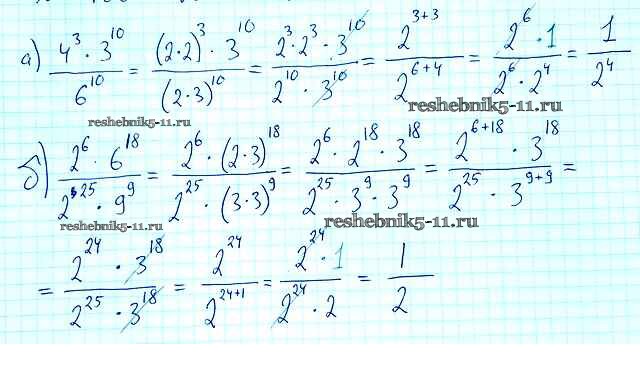 а) 4³·3¹⁰/6¹⁰ = (2·2)³·3¹⁰/(2·3)¹⁰ = 2³·2³·3¹⁰/2¹⁰·3¹⁰ = 2³⁺³/2⁶⁺⁴ = 2⁶·1/2⁶·2⁴ = 1/2⁴
reshebnik5-11.ru
reshebnik5-11.ru
б) 2⁶·6¹⁸/2²⁵·9⁹ = 2⁶·(2·3)¹⁸/2²⁵·(3·3)⁹ = 2⁶·2¹⁸·3¹⁸/2²⁵·3⁹·3⁹ = 2⁶⁺¹⁸·3¹⁸/2²⁵·3⁹⁺⁹ =
reshebnik5-11.ru
reshebnik5-11.ru
= 2²⁴·3¹⁸/2²⁵·3¹⁸ = 2²⁴/2²⁴⁺¹ = 2²⁴·1/2²⁴·2 = 1/2